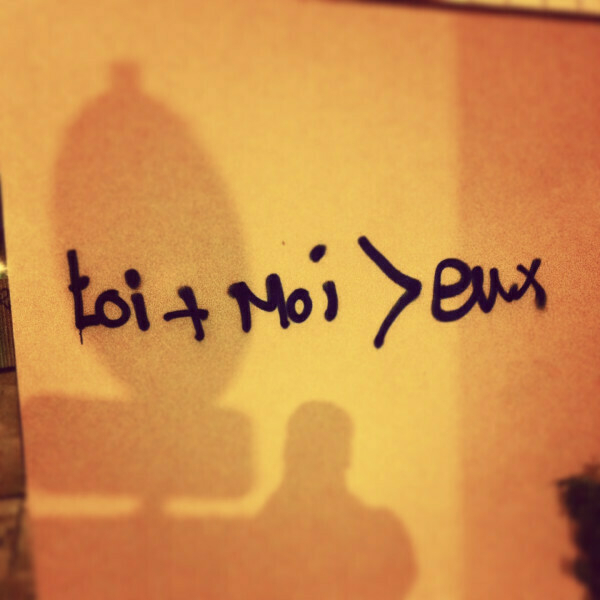 toi + Moi > eux